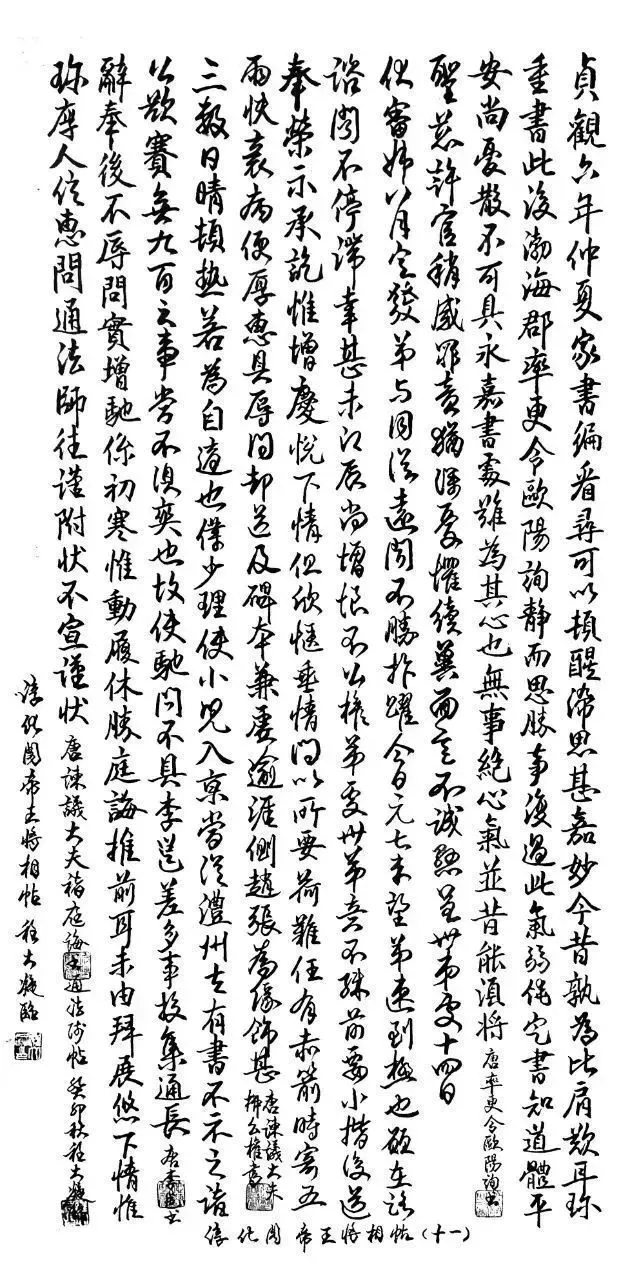 貞觀六年仲夏家書徧看尋可以頓醒滯思甚嘉妙今昔孰為比肩歎耳珎
重書此後渤海郡率更令歐陽詢靜而思勝事復過此氣弱侹定書知道體平
安尚憂散不可具永嘉書處雖為其心也無事絕心氣並昔能湏將 唐率更令歐陽詢書
聖慈許官稍減罪責猶深憂懼續冀面言不誠懇呈卅弟處十四日
伏審姊八月定發弟與同從遠聞不勝抃躍今日元七未望弟速到極也願在路
諮聞不停滯幸甚未間尚增恨不公權弟處卅弟意不殊前要小楷後遣
奉榮示承訖惟增慶悅下情但欣愜垂情問以所要荷難任有赤箭時寄五
兩快衰病便厚惠具辱問却送及碑本兼屢逾涯側趙張為緣飾甚 唐諫議大夫柳公權書
三數日晴頓熱若為自適也僕少理使小兒入京當從澧州去有書不示之諸
公欲賽無九百之事當不俱奕也故使馳問不具李邕差多事投集通長 唐李邕書
辭奉後不辱問實增馳係初寒惟動履休勝庭誨推前耳未由拜展悠下情惟
珎厚人信惠問通法師往謹附狀不宣謹狀 唐諫議大夫褚庭誨書 通法師帖 癸卯秋 程大凝臨
淳化閣帝王將相帖 程大凝臨
淳化閣帝王將相帖（十一）